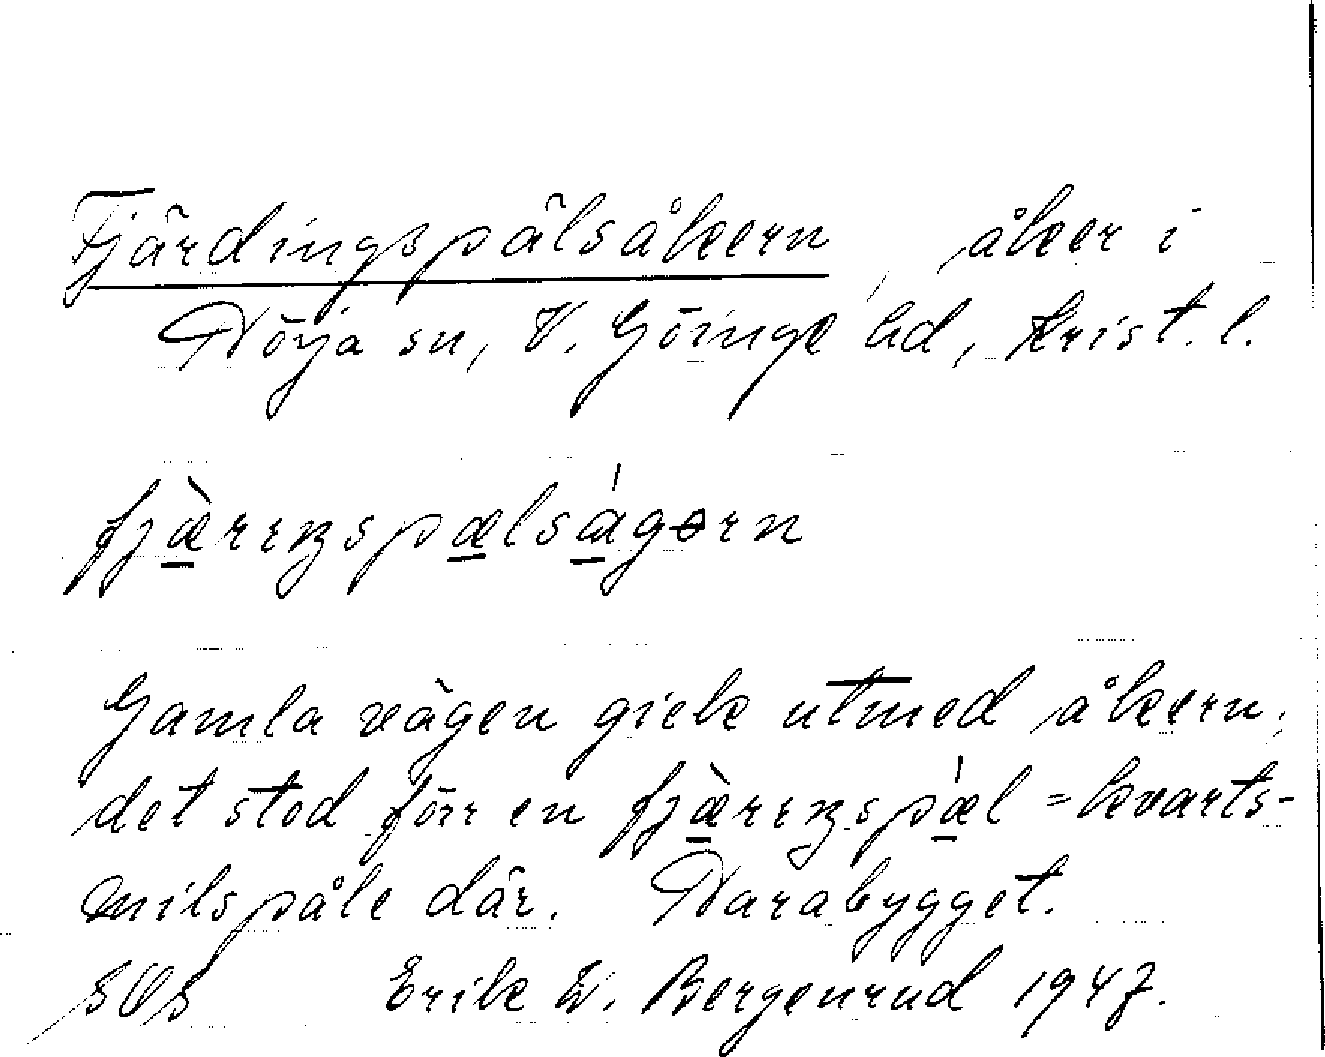 Fjärdingspålsåkern, åker i
Nörja sn, V. Göinge hd, Krist. l.
fjæ̱̀rrɪŋspæ̱lsǻ̱gərn
Gamla vägen gick utmed åkern,
det stod förr en fjæ̱̀rrɪŋspǽ̱l = kvarts-
milspåle där. Narabygget.
Erik W. Bergenrud 1947.